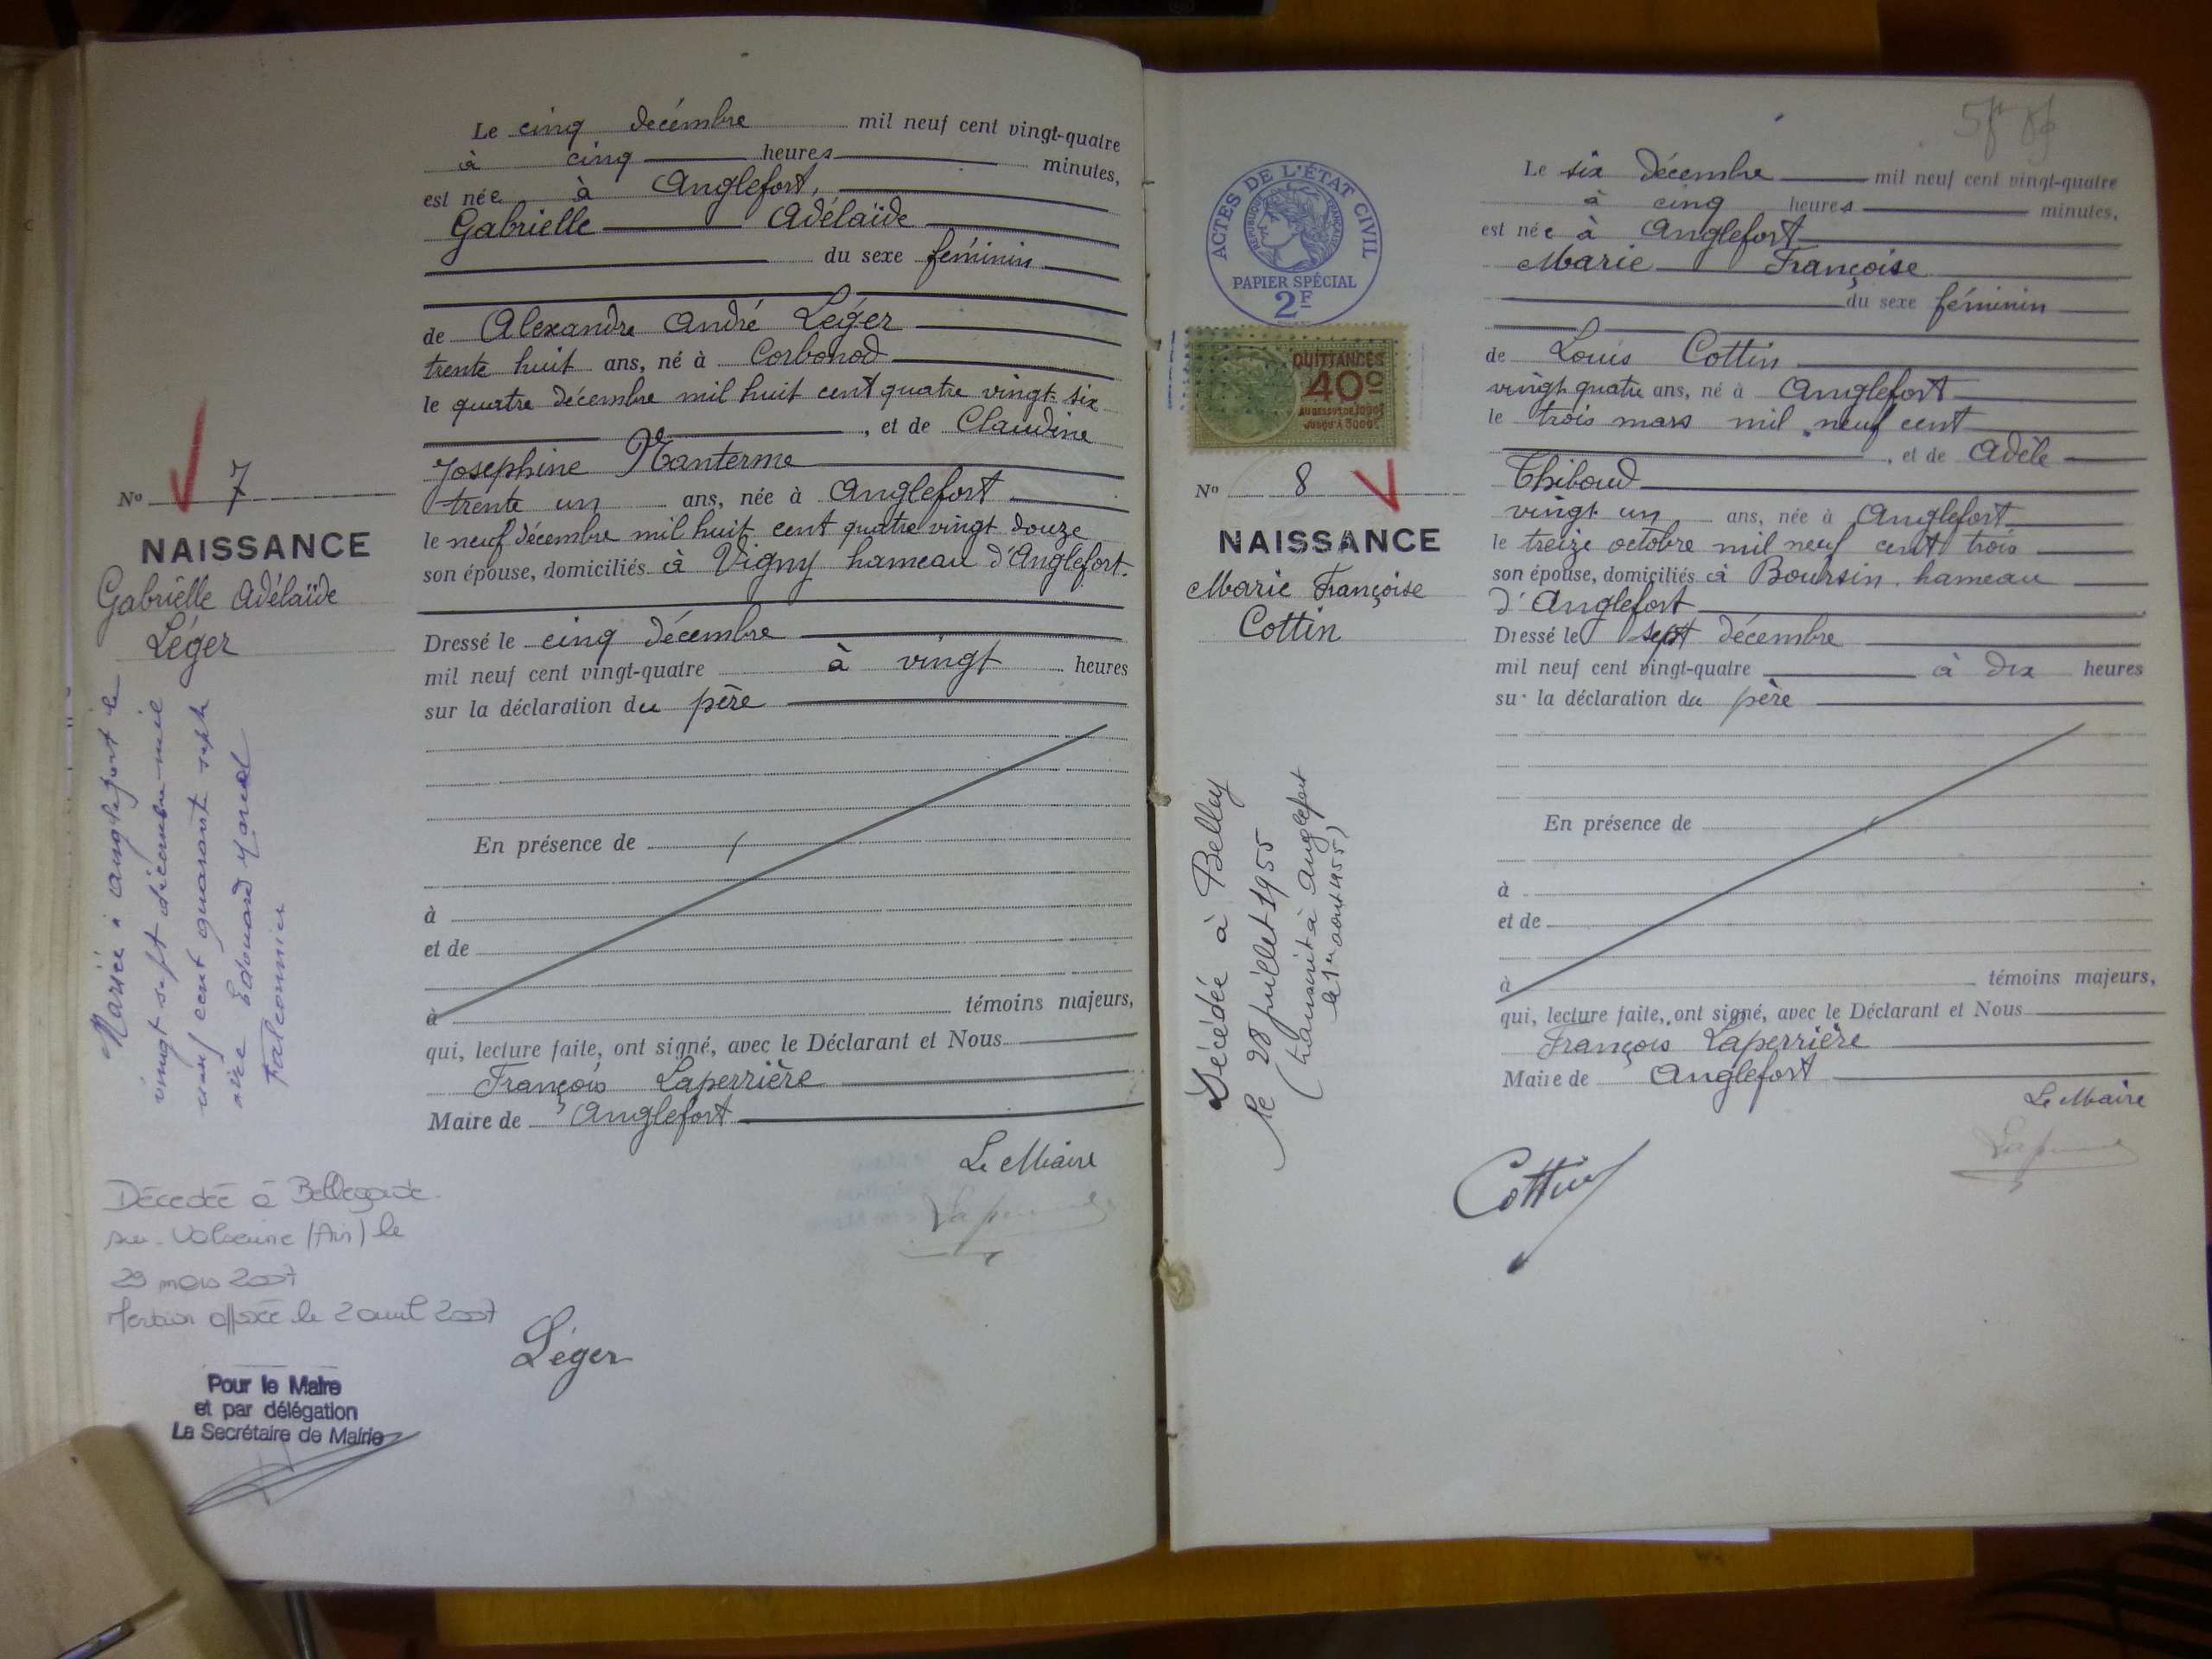 Le cinq decémbre mil neuf cent vingt-quatre
à cinq heures minutes,
est née à Anglefort,
Gabrielle Adélaïde
du sexe féminin
de Alexandre André Léger
trente huit ans, né à Corbonod
le quatre décembre mil huit cent quatre vingt six
, et de Claudine
Josephine Manterme
trente un ans, née à Anglefort
le neuf décembre mil huit cent quatre vingt douze
son épouse, domiciliés à Vigny hameau d'Anglefort.
Dressé le cinq décembre
mil neuf cent vingt-quatre à vingt heures
sur la déclaration du père
En présence de
à
et de
à témoins majeurs,
qui, lecture faite, ont signé, avec le Déclarant et Nous
François Laperrière
Maire de Anglefort
Le Maire
Léger
No 7
NAISSANCE
Gabrielle Adélaïde
Léger
Mariée à Anglefort le
vingt sept décembre mil
neuf cent quarante sept
avec Edouard Marcel
Falconnier
Décédée à Bellegarde
sur-Valserine (Ain) le
29 mars 2007
Mention apposée le 2 avril 2007
Pour le Maire
et par délégation
La Secrétaire de Mairie
ACTES DE L'ÉTAT CIVIL
RÉPUBLIQUE FRANÇAISE
PAPIER SPÉCIAL
2F
QUITTANCES
40c
No 8
NAISSANCE
Marie Françoise
Cottin
Décédée à Belley
le 28 juillet 1955
(transcrit à Anglefort
le 1er août 1955)
Le six décembre mil neuf cent vingt-quatre
à cinq heures minutes,
est née à Anglefort
Marie Françoise
du sexe féminin
de Louis Cottin
vingt quatre ans, né à Anglefort
le trois mars mil neuf cent
, et de Adèle
Thiboud
vingt un ans, née à Anglefort
le treize octobre mil neuf cent trois
son épouse, domiciliés à Boursin hameau
d'Anglefort
Dressé le sept décembre
mil neuf cent vingt-quatre à dix heures
sur la déclaration du père
En présence de
à
et de
à témoins majeurs,
qui, lecture faite, ont signé, avec le Déclarant et Nous
François Laperrière
Maire de Anglefort
Le Maire
Cottin